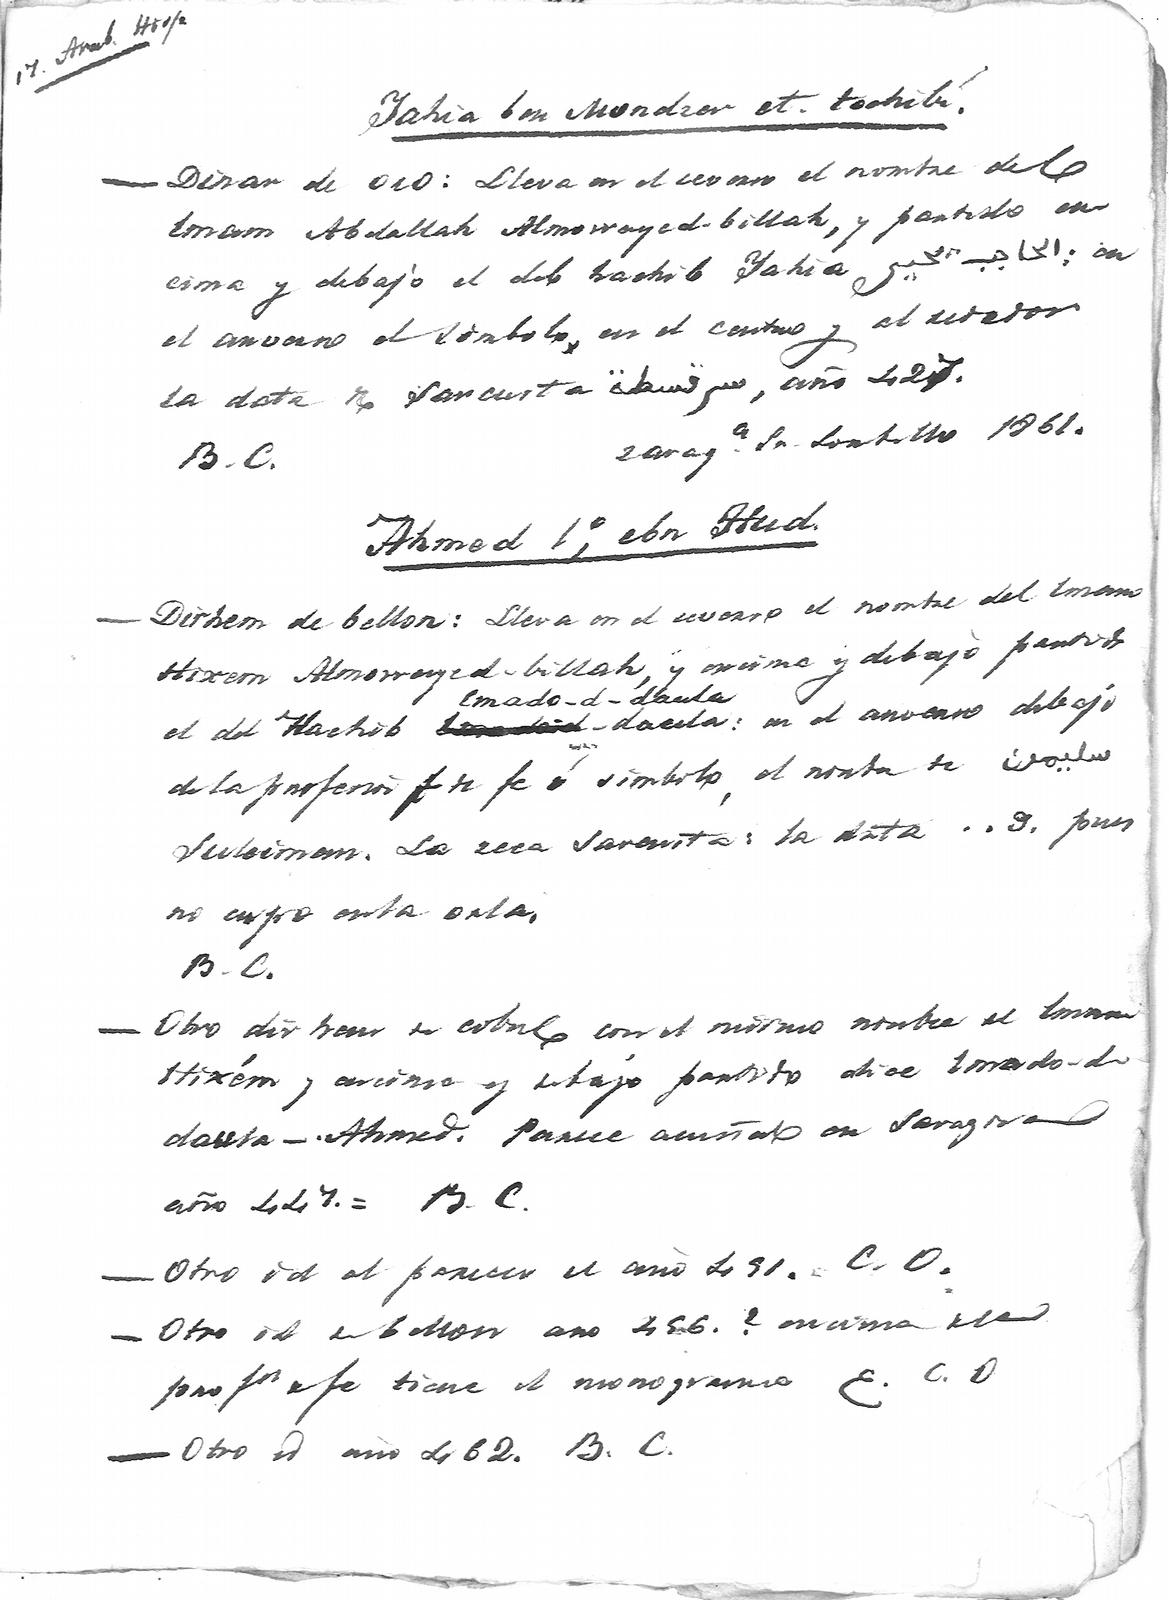 17. Arab. Hisp.
Jahia ben Mondzer et-tochibí.
— Dinar de oro: Lleva en el reverso el nombre del
Imam Abdallah Almowayed-billah, y partido en-
cima y debajo el del hachib Jahia الحاجب يحيى: en
el anverso el símbolo, en el centro y al rededor
la data de Sarcusta سرقسطة, año 427.
B. C. Zarag.ª Sr. 1861.
Ahmed 1º, ebn Hud.
— Dirhem de bellon: Lleva en el reverso el nombre del Imam
Hixem Almowayed-billah, y encima y debajo partido
Imado-d-daula
el del Hachib -daula: en el anverso debajo
de la profesion de fe ó simbolo, el nombre de سليمن
Suleiman. La zeca Sarcusta: la data ..9. pues
no cupo en la orla.
B. C.
— Otro dirhem de cobre con el mismo nombre del Imam
Hixém y encima y debajo partido dice Imado-d-
daula — Ahmed. Parece acuñado en Saragoza
año 447. = B. C.
— Otro id al parecer del año 451. C. O.
— Otro id de bellon año 456. ? encima de la
prof.on de fe tiene el monograma ع. C. O
— Otro id año 462. B. C.